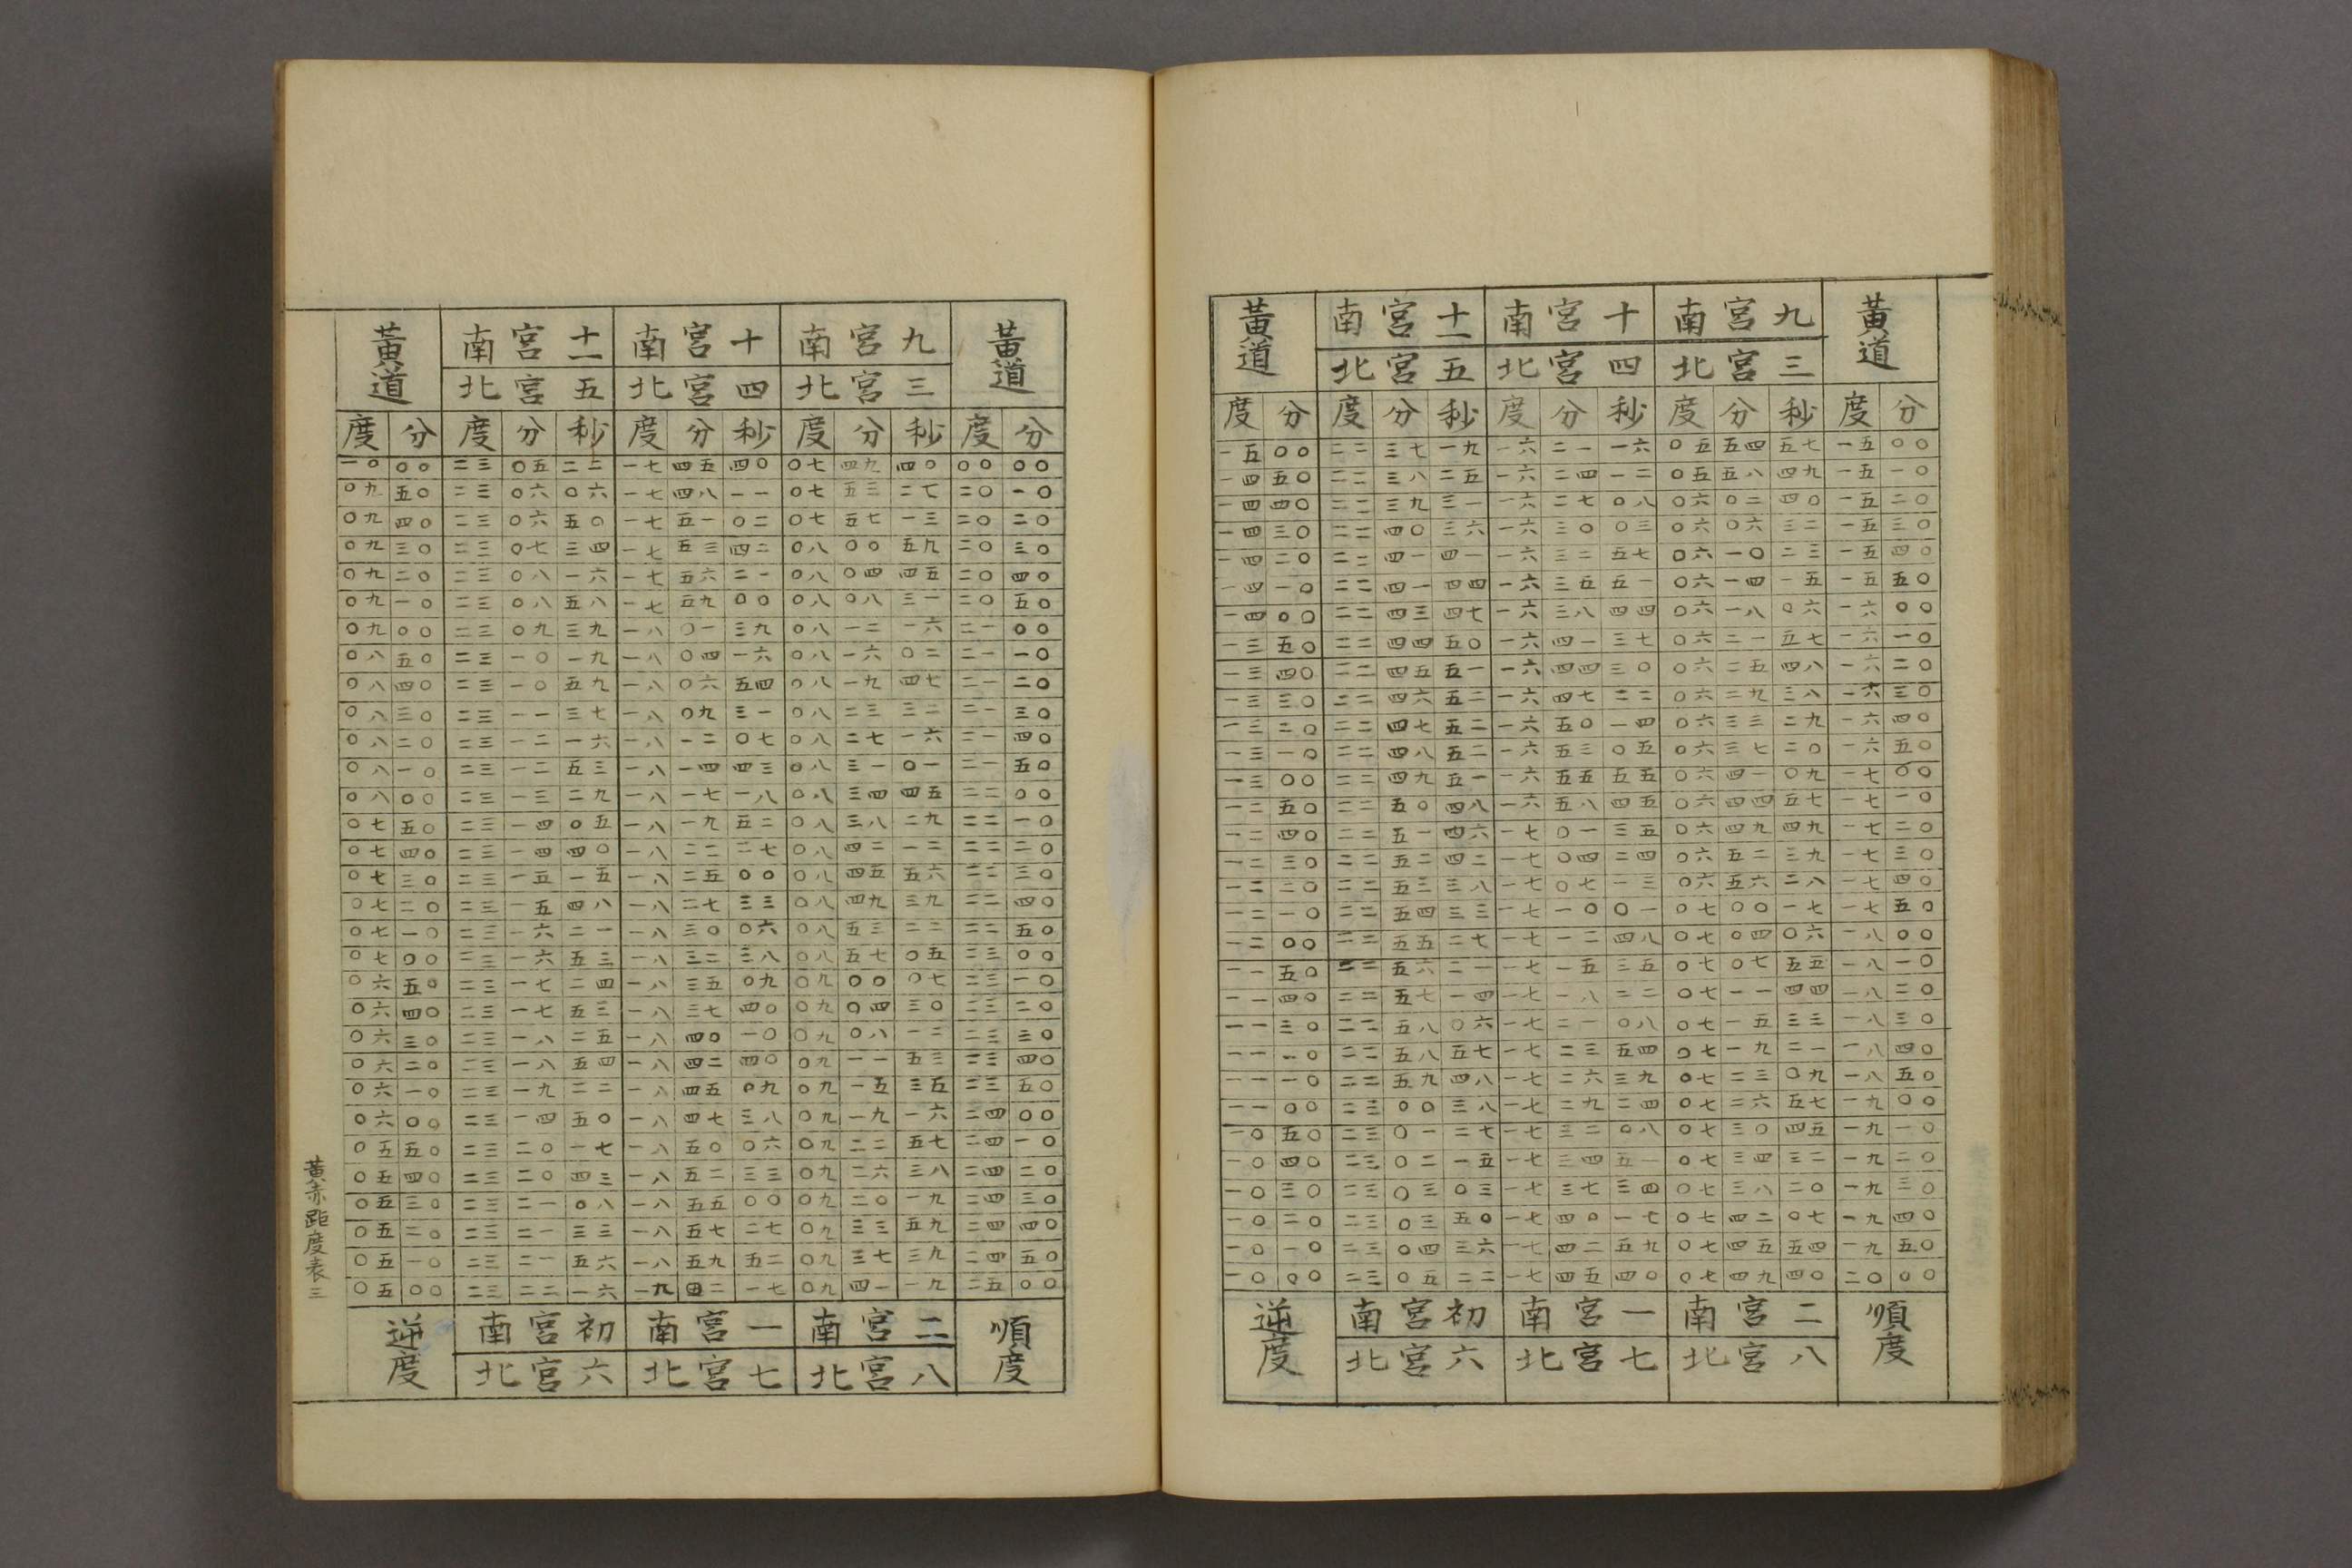 黃道 南宮十一 南宮十 南宮九 黃道
北宮五 北宮四 北宮三
度 分 度 分 秒 度 分 秒 度 分 秒 度 分
一五 〇〇 二二 三七 一九 一六 二一 一六 〇五 五四 五七 一五 〇〇
一四 五〇 二二 三八 二五 一六 二四 一二 〇五 五八 四九 一五 一〇
一四 四〇 二二 三九 三一 一六 二七 〇八 〇六 〇二 四〇 一五 二〇
一四 三〇 二二 四〇 三六 一六 三〇 〇三 〇六 〇六 三二 一五 三〇
一四 二〇 二二 四一 四一 一六 三二 五七 〇六 一〇 二三 一五 四〇
一四 一〇 二二 四一 四四 一六 三五 五一 〇六 一四 一五 一五 五〇
一四 〇〇 二二 四三 四七 一六 三八 四四 〇六 一八 〇六 一六 〇〇
一三 五〇 二二 四四 五〇 一六 四一 三七 〇六 二一 五七 一六 一〇
一三 四〇 二二 四五 五一 一六 四四 三〇 〇六 二五 四八 一六 二〇
一三 三〇 二二 四六 五二 一六 四七 二二 〇六 二九 三八 一六 三〇
一三 二〇 二二 四七 五二 一六 五〇 一四 〇六 三三 二九 一六 四〇
一三 一〇 二二 四八 五二 一六 五三 〇五 〇六 三七 二〇 一六 五〇
一三 〇〇 二二 四九 五一 一六 五五 五五 〇六 四一 〇九 一七 〇〇
一二 五〇 二二 五〇 四八 一六 五八 四五 〇六 四四 五七 一七 一〇
一二 四〇 二二 五一 四六 一七 〇一 三五 〇六 四九 四九 一七 二〇
一二 三〇 二二 五二 四二 一七 〇四 二四 〇六 五二 三九 一七 三〇
一二 二〇 二二 五三 三八 一七 〇七 一三 〇六 五六 二八 一七 四〇
一二 一〇 二二 五四 三三 一七 一〇 〇一 〇七 〇〇 一七 一七 五〇
一二 〇〇 二二 五五 二七 一七 一二 四八 〇七 〇四 〇六 一八 〇〇
一一 五〇 二二 五六 二一 一七 一五 三五 〇七 〇七 五五 一八 一〇
一一 四〇 二二 五七 一四 一七 一八 二二 〇七 一一 四四 一八 二〇
一一 三〇 二二 五八 〇六 一七 二一 〇八 〇七 一五 三三 一八 三〇
一一 二〇 二二 五八 五七 一七 二三 五四 〇七 一九 二一 一八 四〇
一一 一〇 二二 五九 四八 一七 二六 三九 〇七 二三 〇九 一八 五〇
一一 〇〇 二三 〇〇 三八 一七 二九 二四 〇七 二六 五七 一九 〇〇
一〇 五〇 二三 〇一 二七 一七 三二 〇八 〇七 三〇 四五 一九 一〇
一〇 四〇 二三 〇二 一五 一七 三四 五一 〇七 三四 三二 一九 二〇
一〇 三〇 二三 〇三 〇三 一七 三七 三四 〇七 三八 二〇 一九 三〇
一〇 二〇 二三 〇三 五〇 一七 四〇 一七 〇七 四二 〇七 一九 四〇
一〇 一〇 二三 〇四 三六 一七 四二 五九 〇七 四五 五四 一九 五〇
一〇 〇〇 二三 〇五 二二 一七 四五 四〇 〇七 四九 四〇 二〇 〇〇
逆度 南宮初 南宮一 南宮二 順度
北宮六 北宮七 北宮八
黃道 南宮十一 南宮十 南宮九 黃道
北宮五 北宮四 北宮三
度 分 度 分 秒 度 分 秒 度 分 秒 度 分
一〇 〇〇 二三 〇五 二二 一七 四五 四〇 〇七 四九 四〇 〇〇 〇〇
〇九 五〇 二三 〇六 〇六 一七 四八 一一 〇七 五三 二七 二〇 一〇
〇九 四〇 二三 〇六 五〇 一七 五一 〇二 〇七 五七 一三 二〇 二〇
〇九 三〇 二三 〇七 三四 一七 五三 四二 〇八 〇〇 五九 二〇 三〇
〇九 二〇 二三 〇八 一六 一七 五六 二一 〇八 〇四 四五 二〇 四〇
〇九 一〇 二三 〇八 五八 一七 五九 〇〇 〇八 〇八 三一 二〇 五〇
〇九 〇〇 二三 〇九 三九 一八 〇一 三九 〇八 一二 一六 二一 〇〇
〇八 五〇 二三 一〇 一九 一八 〇四 一六 〇八 一六 〇二 二一 一〇
〇八 四〇 二三 一〇 五九 一八 〇六 五四 〇八 一九 四七 二一 二〇
〇八 三〇 二三 一一 三七 一八 〇九 三一 〇八 二三 三二 二一 三〇
〇八 二〇 二三 一二 一六 一八 一二 〇七 〇八 二七 一六 二一 四〇
〇八 一〇 二三 一二 五三 一八 一四 四三 〇八 三一 〇一 二一 五〇
〇八 〇〇 二三 一三 二九 一八 一七 一八 〇八 三四 四五 二二 〇〇
〇七 五〇 二三 一四 〇五 一八 一九 五二 〇八 三八 二九 二二 一〇
〇七 四〇 二三 一四 四〇 一八 二二 二七 〇八 四二 一二 二二 二〇
〇七 三〇 二三 一五 一五 一八 二五 〇〇 〇八 四五 五六 二二 三〇
〇七 二〇 二三 一五 四八 一八 二七 三三 〇八 四九 三九 二二 四〇
〇七 一〇 二三 一六 二一 一八 三〇 〇六 〇八 五三 二二 二二 五〇
〇七 〇〇 二三 一六 五三 一八 三二 三八 〇八 五七 〇五 二三 〇〇
〇六 五〇 二三 一七 二四 一八 三五 〇九 〇九 〇〇 〇七 二三 一〇
〇六 四〇 二三 一七 五三 一八 三七 四〇 〇九 〇四 三〇 二三 二〇
〇六 三〇 二三 一八 二五 一八 四〇 一〇 〇九 〇八 一二 二三 三〇
〇六 二〇 二三 一八 五四 一八 四二 四〇 〇九 一一 五三 二三 四〇
〇六 一〇 二三 一九 二二 一八 四五 〇九 〇九 一五 三五 二三 五〇
〇六 〇〇 二三 一四 五〇 一八 四七 三八 〇九 一九 一六 二四 〇〇
〇五 五〇 二三 二〇 一七 一八 五〇 〇六 〇九 二二 五七 二四 一〇
〇五 四〇 二三 二〇 四三 一八 五二 三三 〇九 二六 三八 二四 二〇
〇五 三〇 二三 二一 〇八 一八 五五 〇〇 〇九 二〇 一九 二四 三〇
〇五 二〇 二三 二一 三三 一八 五七 二七 〇九 三三 五九 二四 四〇
〇五 一〇 二三 二一 五六 一八 五九 五二 〇九 三七 三九 二四 五〇
〇五 〇〇 二三 二二 一六 一九 四二 一七 〇九 四一 一九 二五 〇〇
逆度 南宮初 南宮一 南宮二 順度
北宮六 北宮七 北宮八
黃赤距度表三